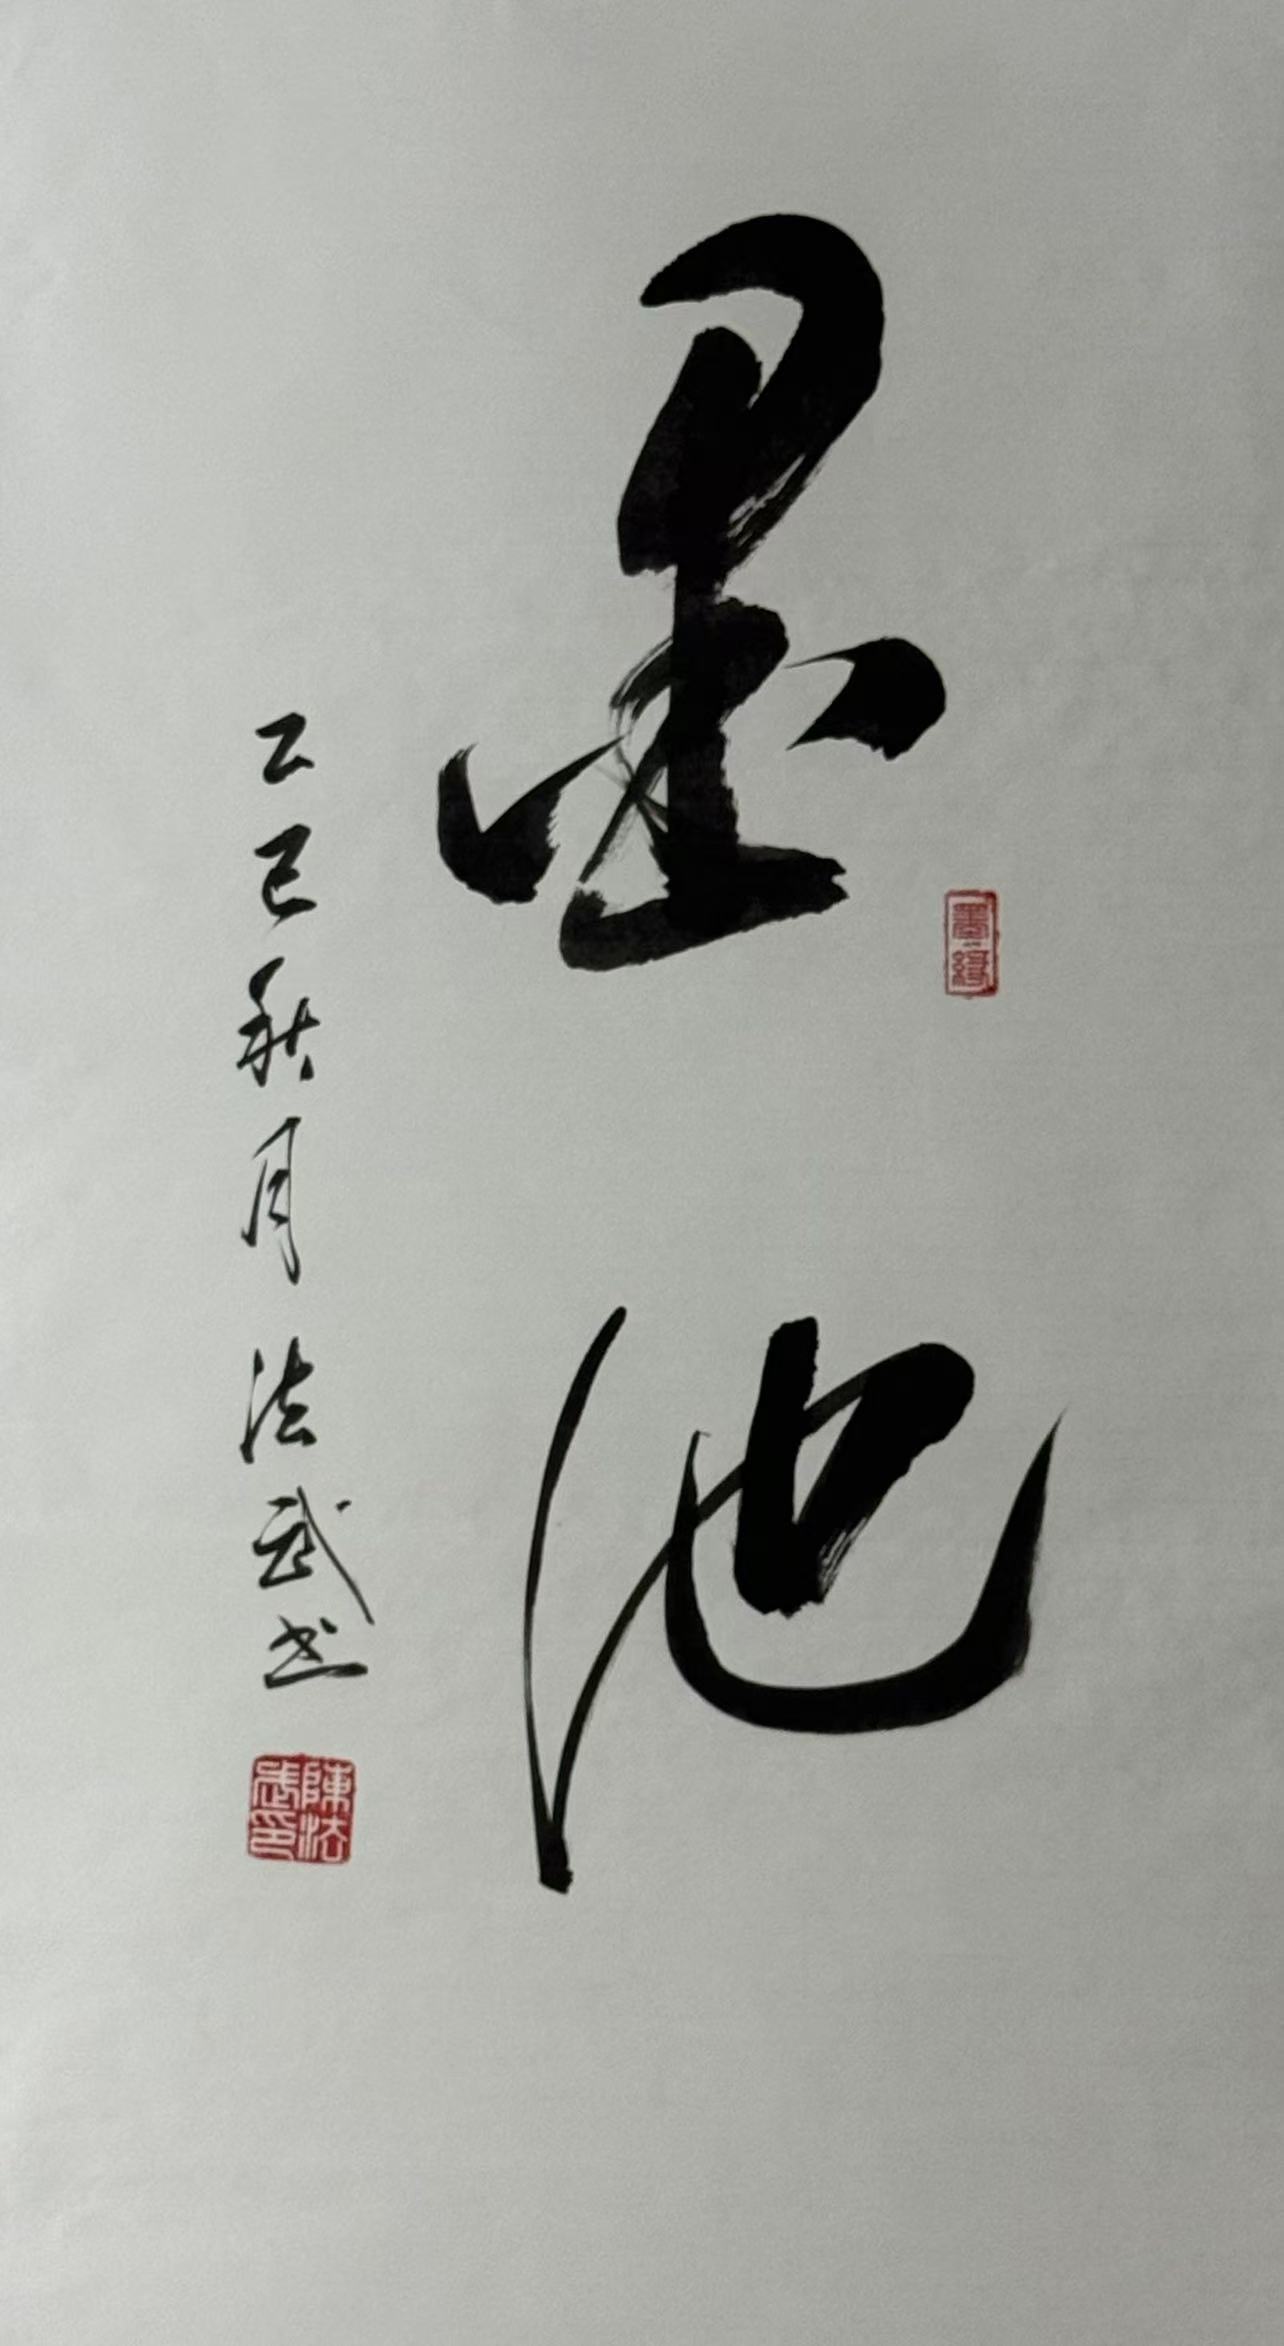 墨池
墨缘
乙巳秋月法武书
陳法武印